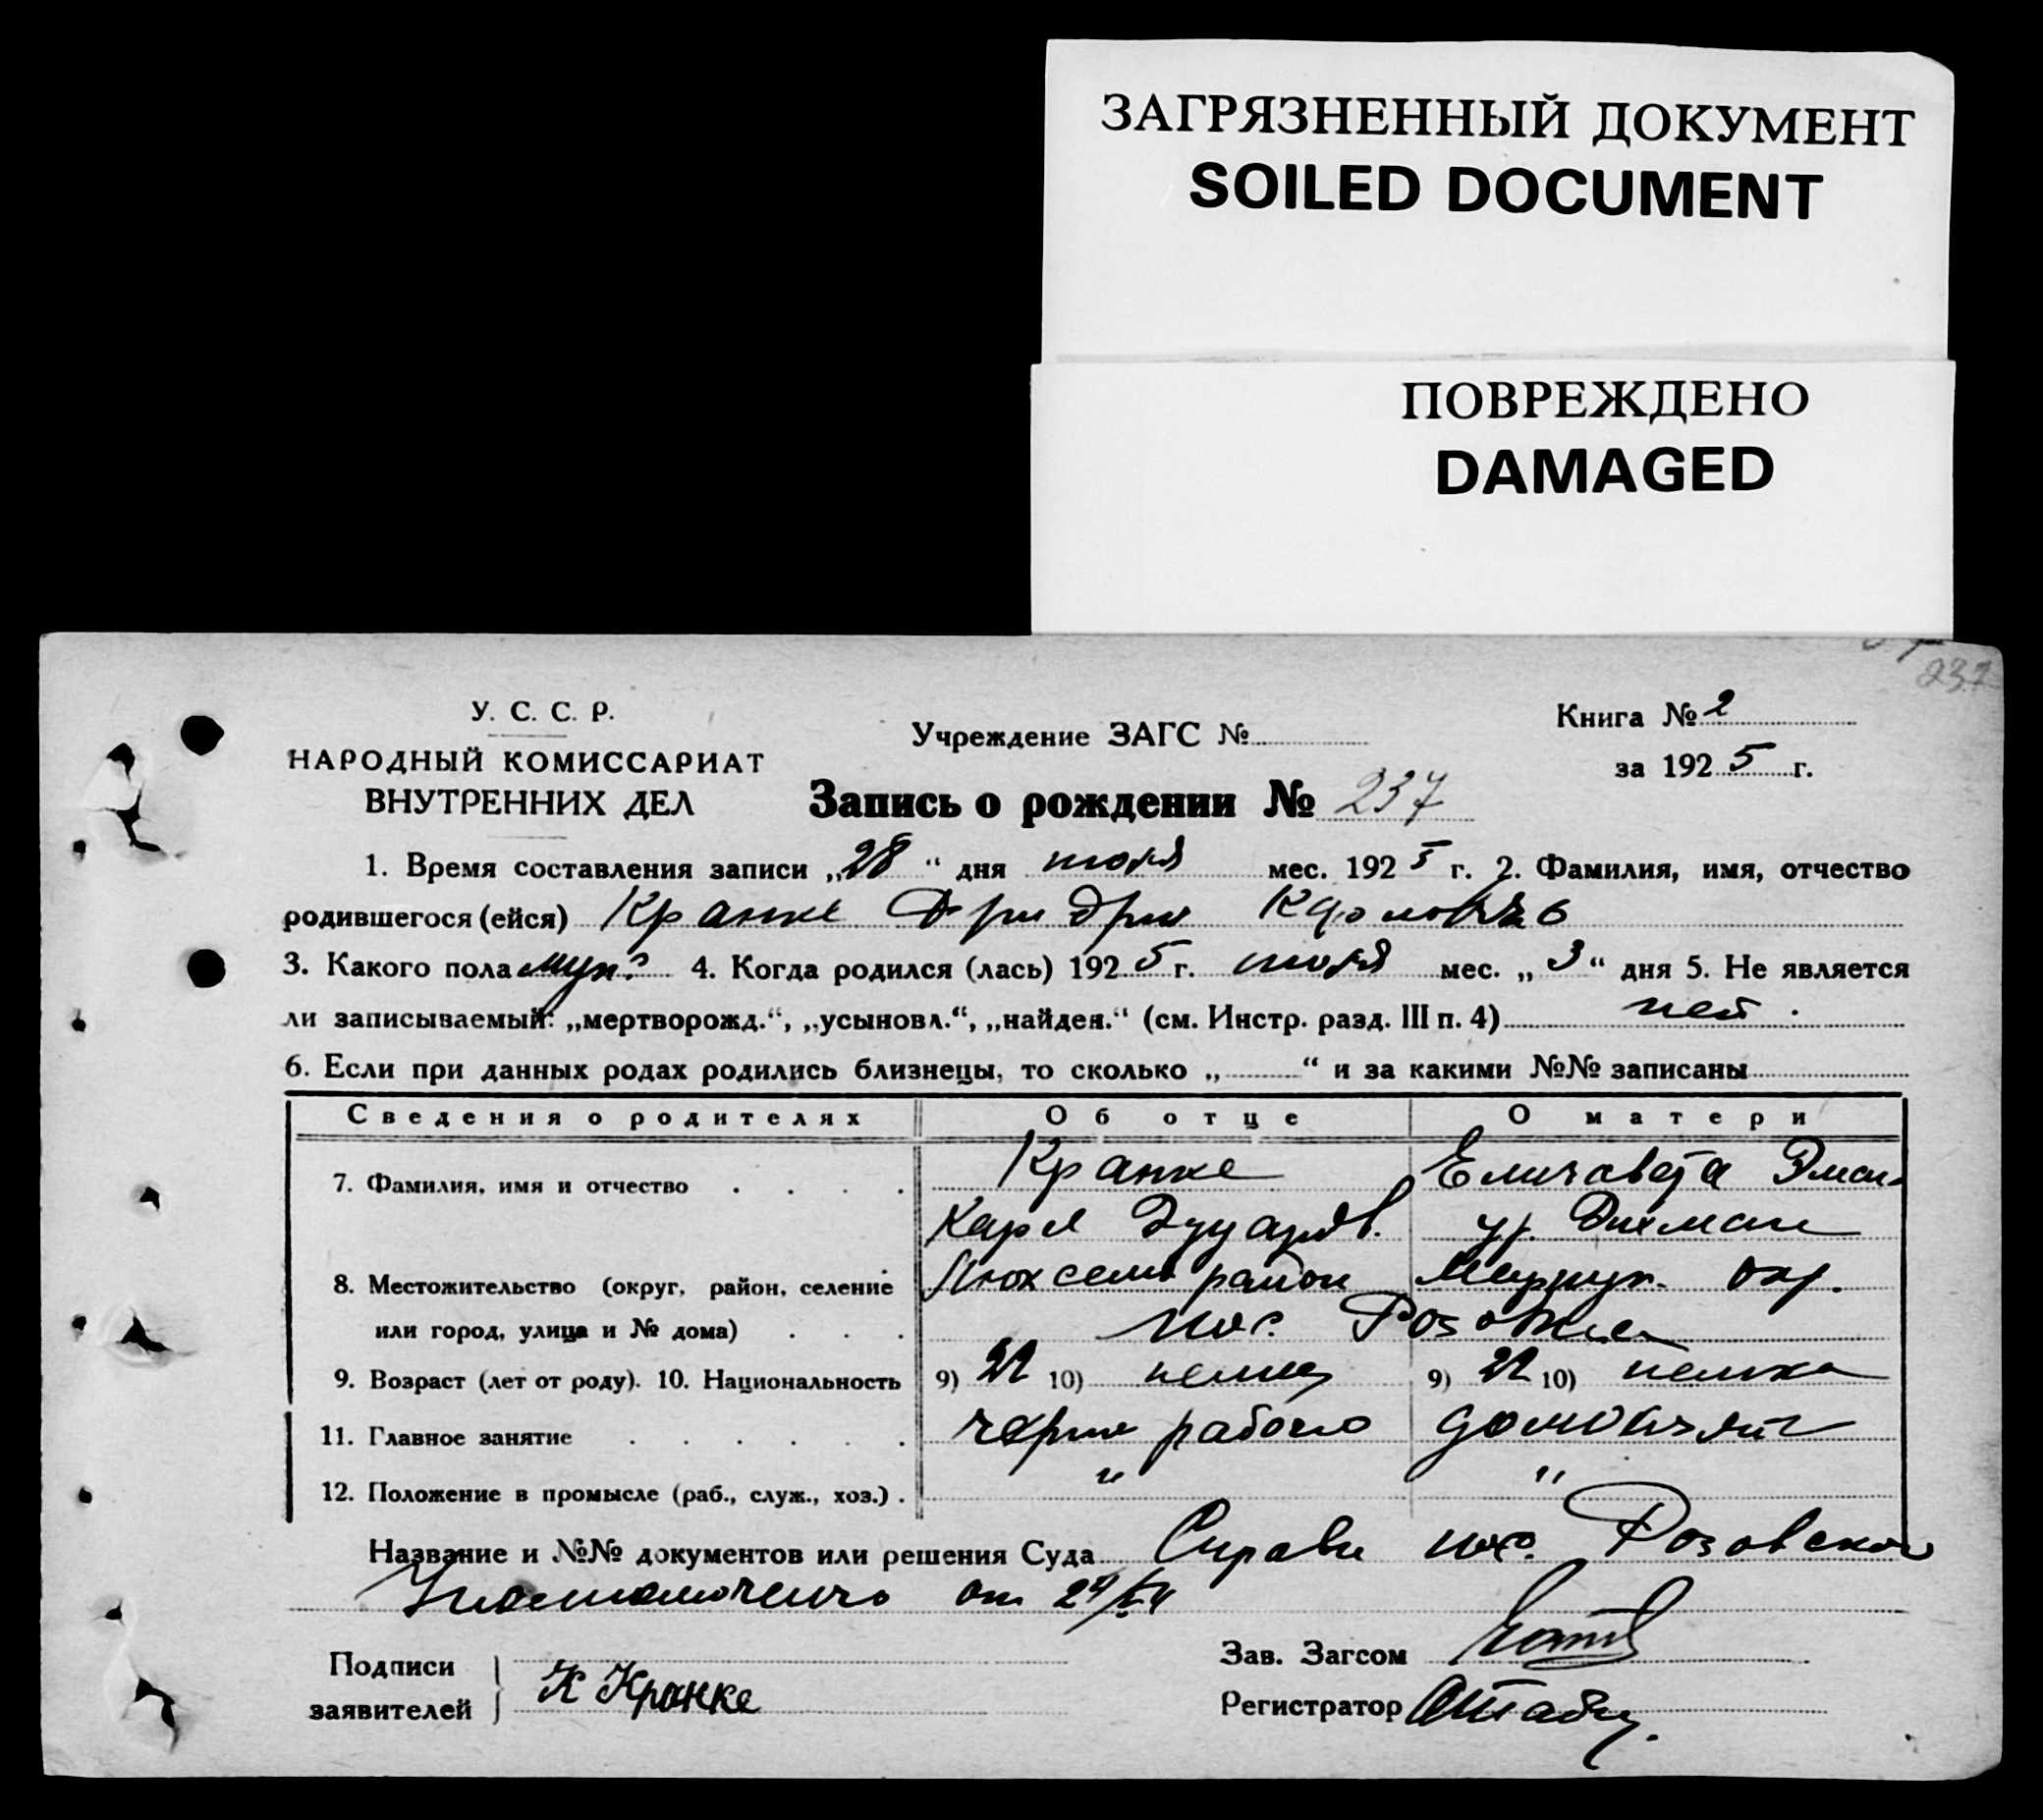 ЗАГРЯЗНЕННЫЙ ДОКУМЕНТ
SOILED DOCUMENT
ПОВРЕЖДЕНО
DAMAGED
237
У. С. С. Р.
НАРОДНЫЙ КОМИССАРИАТ
ВНУТРЕННИХ ДЕЛ
Учреждение ЗАГС №
Книга № 2
за 1925 г.
Запись о рождении № 237
1. Время составления записи „28“ дня июля мес. 1925 г. 2. Фамилия, имя, отчество
родившегося (ейся) Кранке Фридрих Карлович
3. Какого пола муж. 4. Когда родился (лась) 1925 г. июля мес. „3“ дня 5. Не является
ли записываемый: „мертворожд.“, „усыновл.“, „найден.“ (см. Инстр. разд. III п. 4) нет
6. Если при данных родах родились близнецы, то сколько „ “ и за какими №№ записаны
Сведения о родителях Об отце О матери
7. Фамилия, имя и отчество Кранке Елизавета
Карл Эдуардов. ур. Дикман
8. Местожительство (округ, район, селение Люксемб район Мариуп. окр.
или город, улица и № дома) пос. Розовка
9. Возраст (лет от роду). 10. Национальность 9) 22 10) немец 9) 22 10) немка
11. Главное занятие черно рабоч домохоз
12. Положение в промысле (раб., служ., хоз.) " "
Название и №№ документов или решения Суда Справк пос. Розовского
от
Подписи заявителей К Кранке
Зав. Загсом
Регистратор